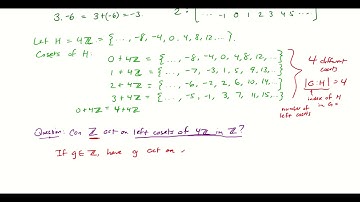 3·-6 = 3+(-6) = -3
2 : [ ... -1 0 1 2 3 4 5 ...
Let H = 4ℤ = {..., -8, -4, 0, 4, 8, 12, ...}.
Cosets of H:
0+4ℤ = {..., -8, -4, 0, 4, 8, 12, ...}
1+4ℤ = {..., -7, -3, 1, 5, 9, 13, ...}
2+4ℤ = {..., -6, -2, 2, 6, 10, 14, ...}
3+4ℤ = {..., -5, -1, 3, 7, 11, 15, ...}
0+4ℤ = 4+4ℤ
4 different
cosets
|G:H| = 4
index of H
in G =
number of
left cosets
Question: Can ℤ act on left cosets of 4ℤ in ℤ?
If g∈ℤ, have g act on